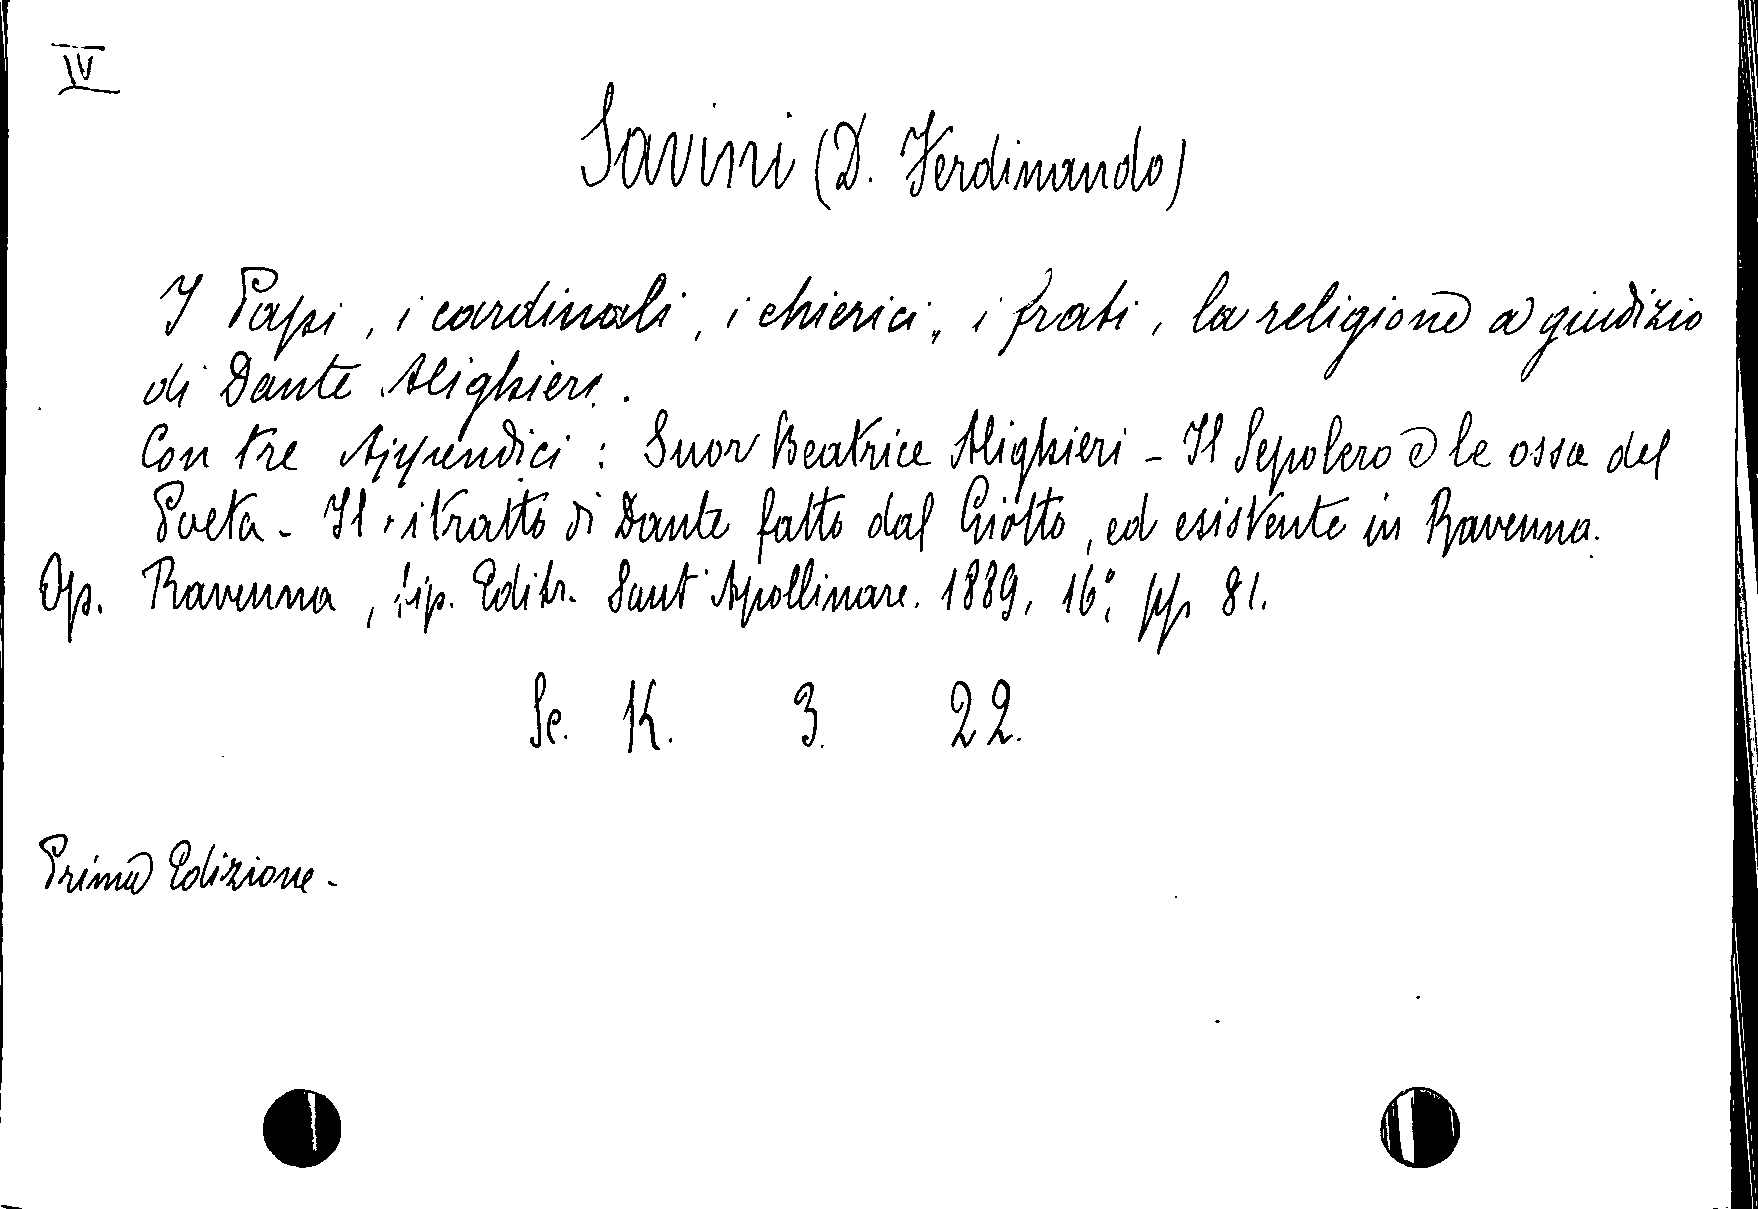 IV
Savini (D. Ferdinando)
I Papi, i cardinali, i chierici, i frati, la religione a giudizio
di Dante Alighieri.
Con tre Appendici: Suor Beatrice Alighieri - Il Sepolcro e le ossa del
Poeta - Il ritratto di Dante fatto dal Giotto, ed esistente in Ravenna.
Op. Ravenna, tip. Editr. Sant'Apollinare. 1889, 16°, pp. 81.
Sc. K. 3. 22.
Prima Edizione -